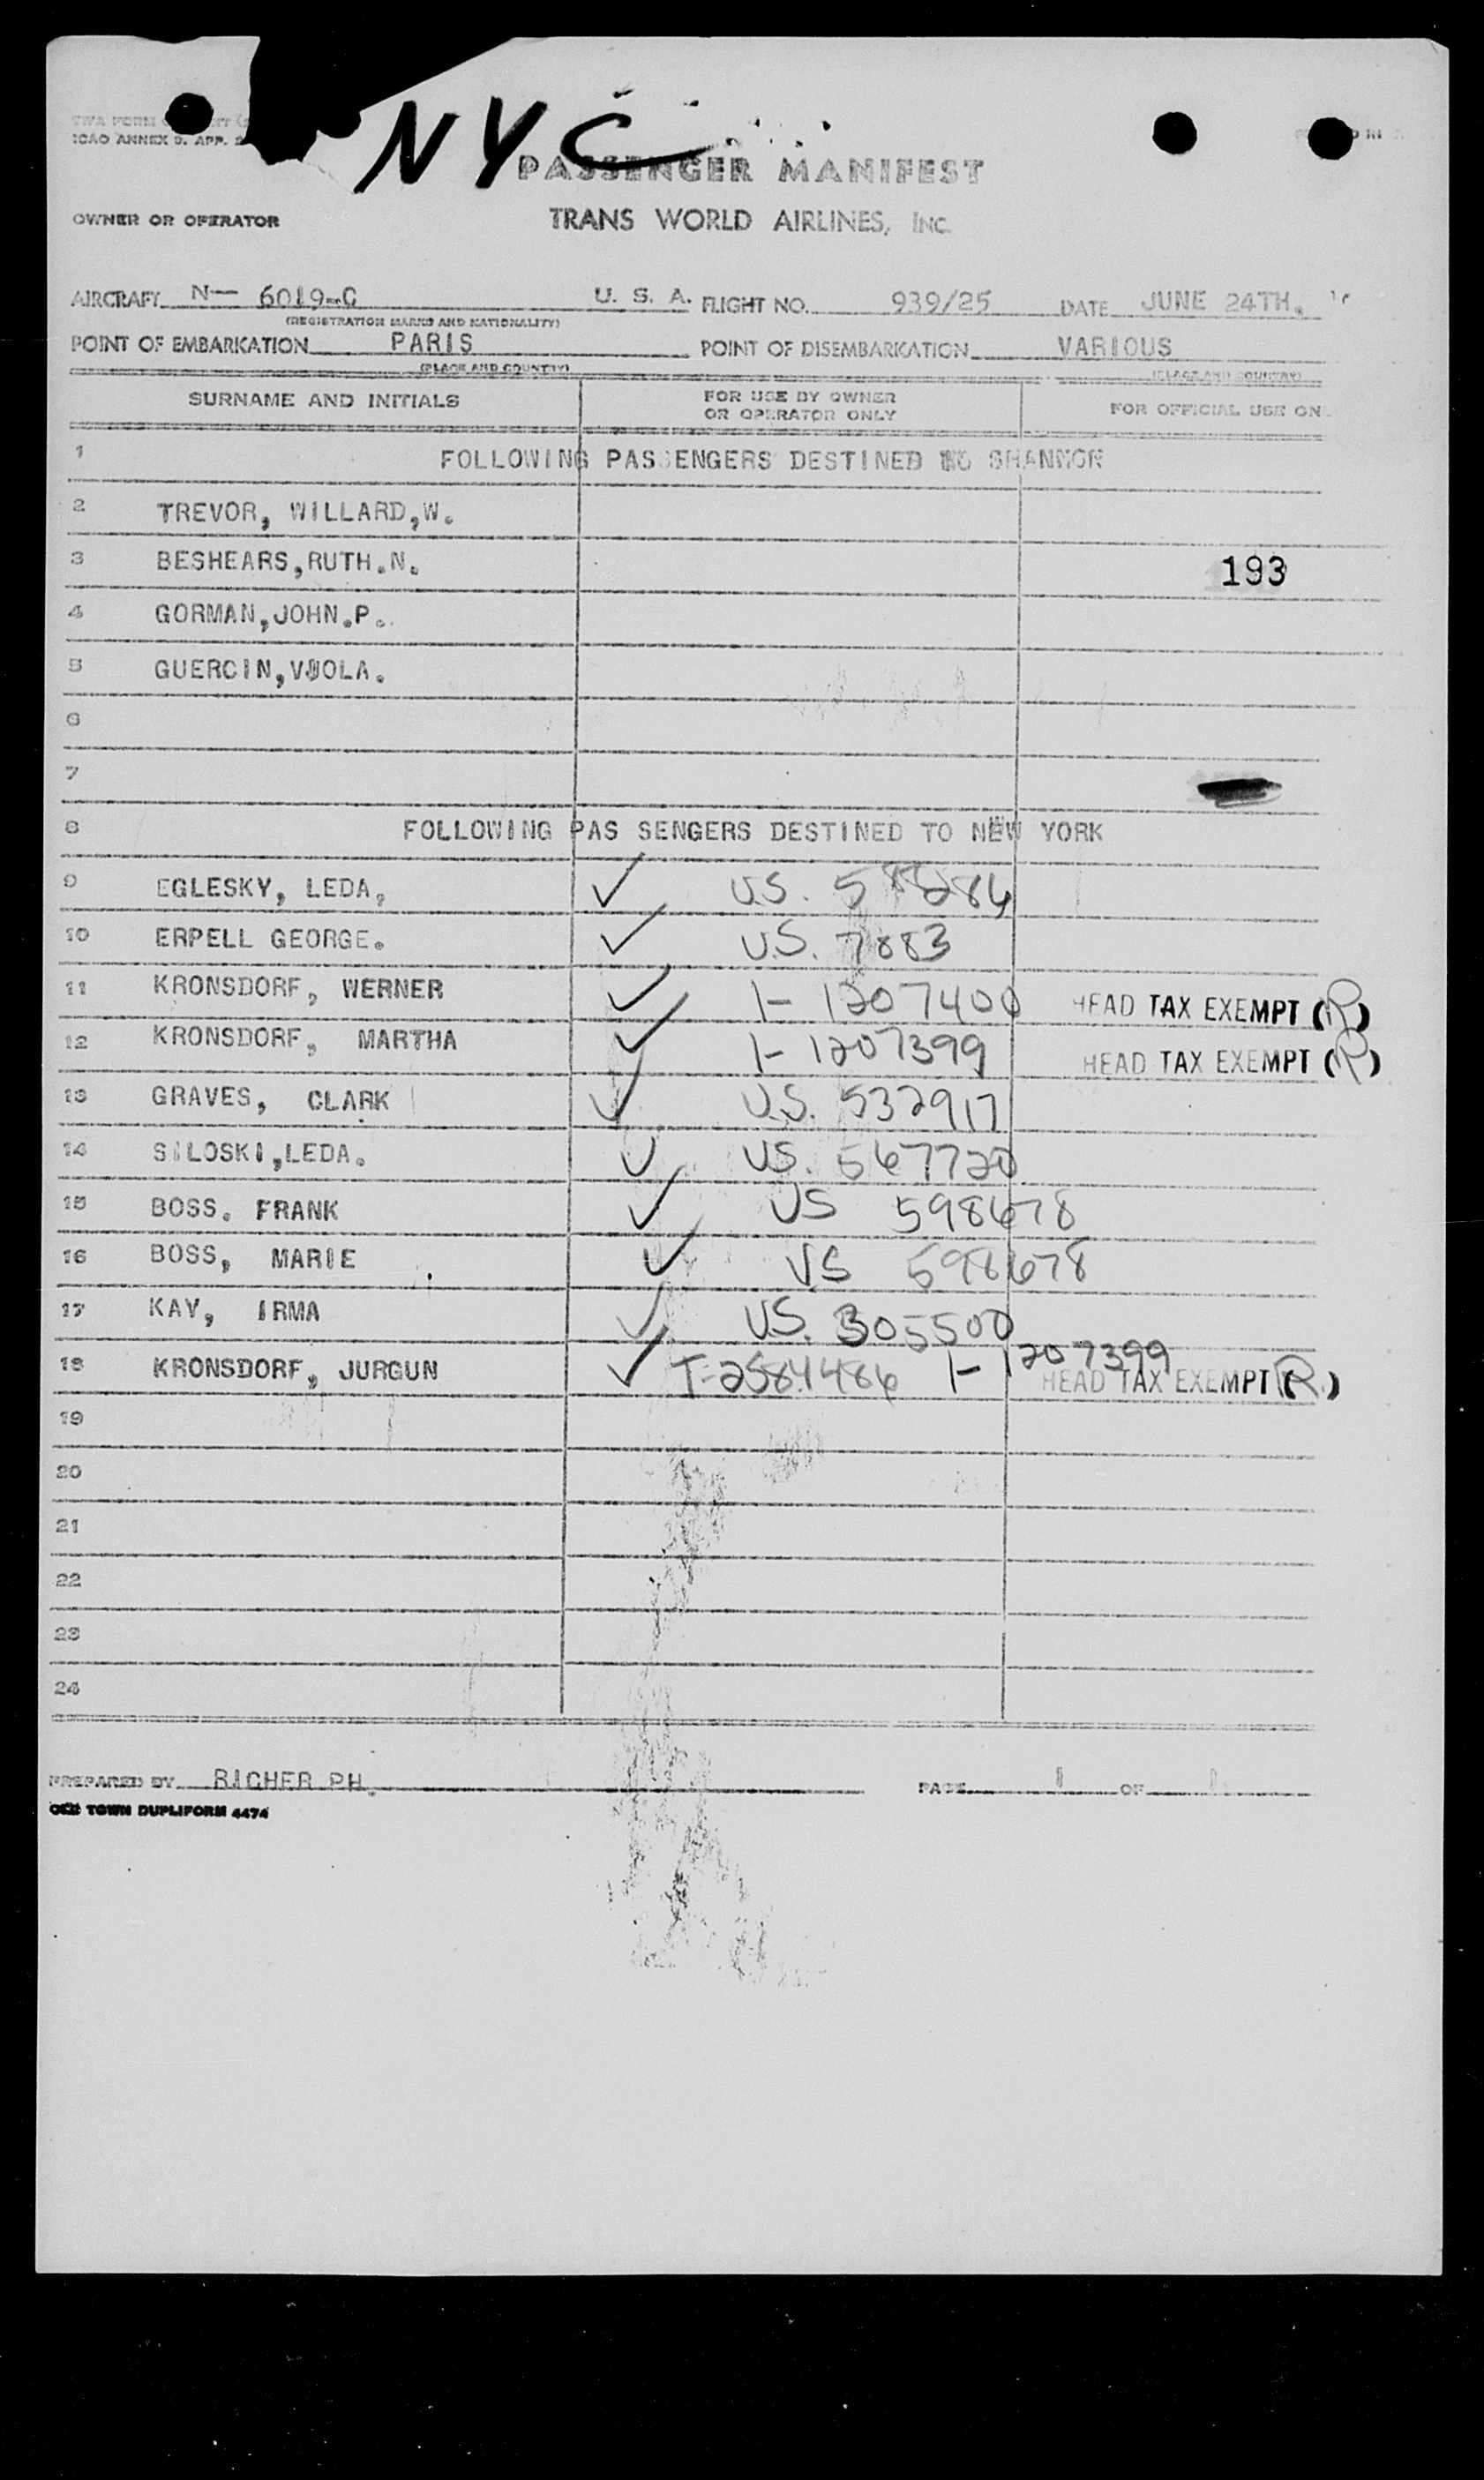 NYC
TWA FORM
ICAO ANNEX 9. APP. 2
PASSENGER MANIFEST
OWNER OR OPERATOR TRANS WORLD AIRLINES, INC.
AIRCRAFT N— 6019-C U. S. A. FLIGHT NO. 939/25 DATE JUNE 24TH.
(REGISTRATION MARKS AND NATIONALITY)
POINT OF EMBARKATION PARIS POINT OF DISEMBARKATION VARIOUS
(PLACE AND COUNTRY) (PLACE AND COUNTRY)
SURNAME AND INITIALS FOR USE BY OWNER OR OPERATOR ONLY FOR OFFICIAL USE ON
1 FOLLOWING PASSENGERS DESTINED TO SHANNON
2 TREVOR, WILLARD,W.
3 BESHEARS,RUTH.N. 193
4 GORMAN,JOHN.P.
5 GUERCIN,VIOLA.
6
7
8 FOLLOWING PAS SENGERS DESTINED TO NEW YORK
9 EGLESKY, LEDA, ✓ U.S. 588286
10 ERPELL GEORGE. ✓ U.S. 7883
11 KRONSDORF, WERNER ✓ I- 1207400 HEAD TAX EXEMPT (R)
12 KRONSDORF, MARTHA ✓ I- 1207399 HEAD TAX EXEMPT (R)
13 GRAVES, CLARK ✓ U.S. 532917
14 SILOSKI,LEDA. ✓ US. 567720
15 BOSS. FRANK ✓ US 598678
16 BOSS, MARIE ✓ US 598678
17 KAY, IRMA ✓ US. 305500
18 KRONSDORF, JURGUN ✓ T-2584486 I- 1207399 HEAD TAX EXEMPT (R.)
19
20
21
22
23
24
PREPARED BY RICHER PH. PAGE 1 OF 1
OLD TOWN DUPLIFORM 4474